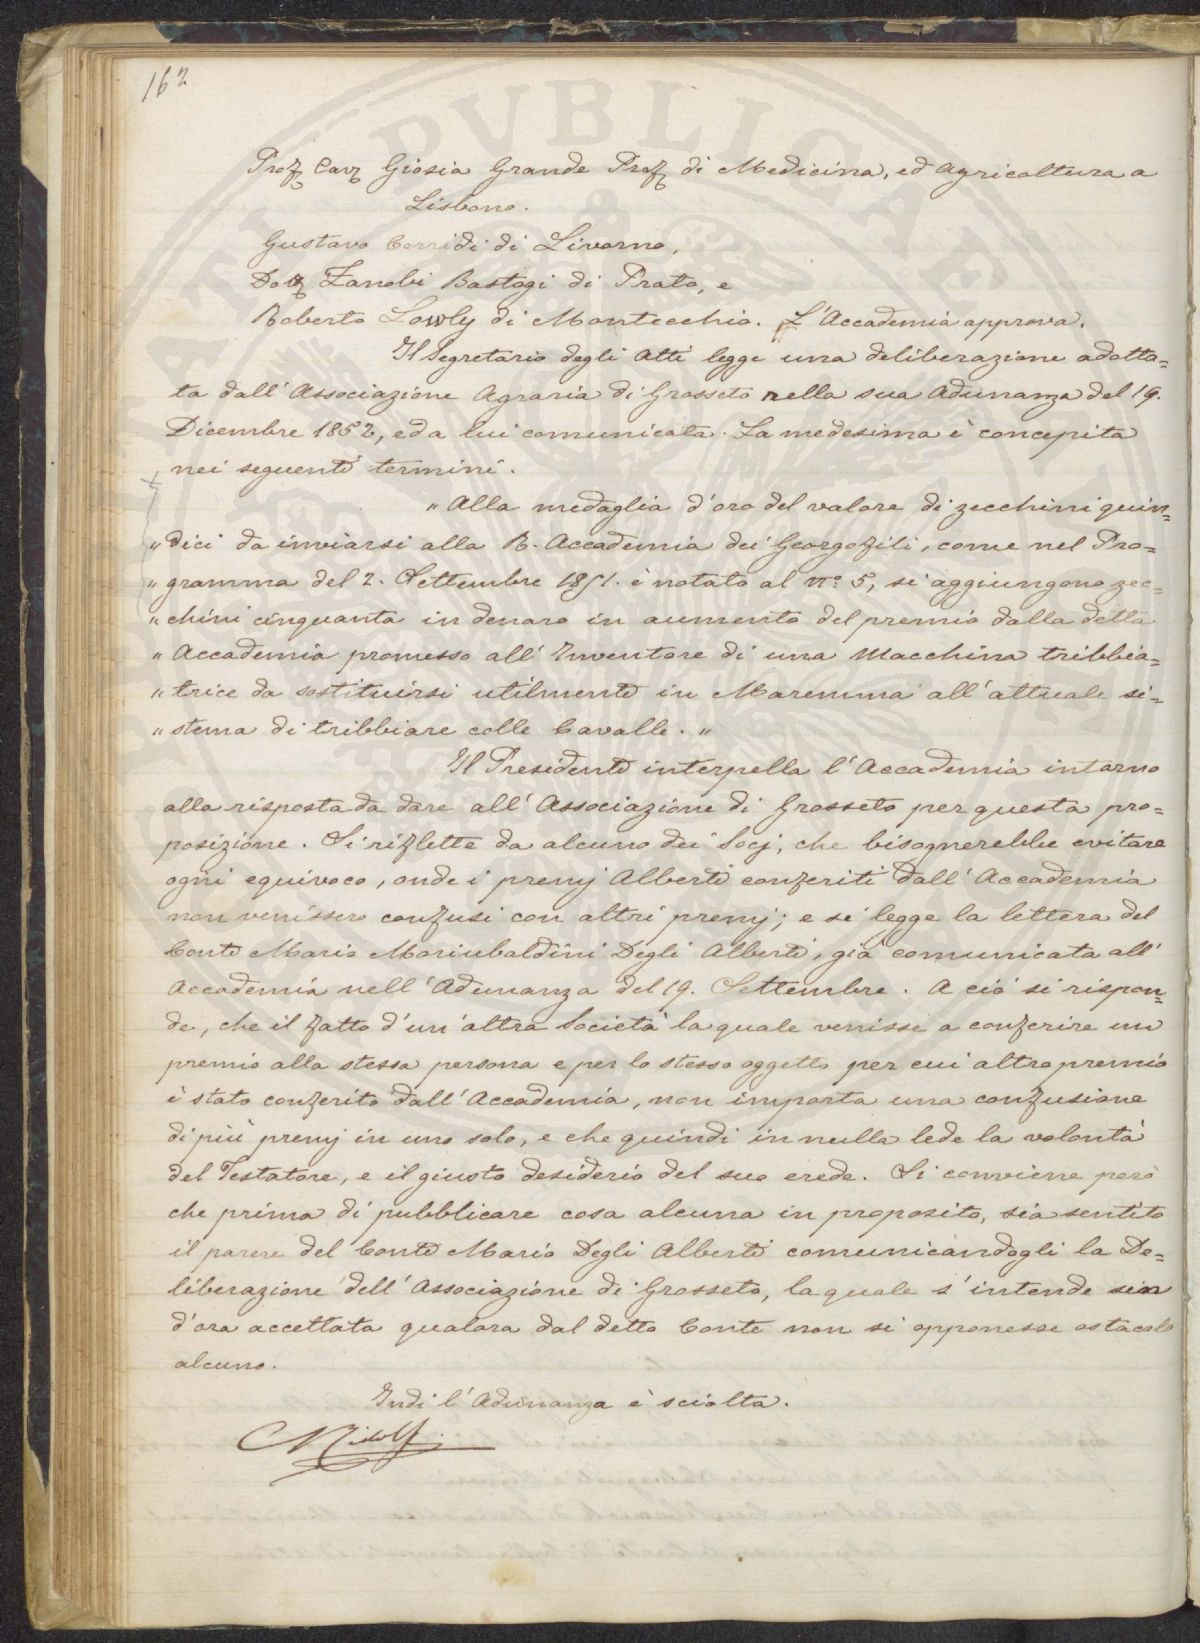 162
Prof. Cav. Giosia Grande Prof. di Medicina, ed Agricoltura a
Lisbona.
Gustavo Corridi di Livorno,
Dott. Zanobi Bastogi di Prato, e
Roberto Lowly di Montecchio. L'Accademia approva.
Il Segretario degli Atti legge una deliberazione adotta=
ta dall'Associazione Agraria di Grosseto nella sua Adunanza del 19.
Dicembre 1852, ed a lui comunicata. La medesima è concepita
nei seguenti termini.
" Alla medaglia d'oro del valore di zecchini quin=
" dici da inviarsi alla R. Accademia dei Georgofili, come nel Pro=
" gramma del 2. Settembre 1851. è notato al n.º 5, si aggiungono zec=
" chini cinquanta in denaro in aumento del premio dalla detta
" Accademia promesso all'Inventore di una Macchina tribbia=
" trice da sostituirsi utilmente in Maremma all'attuale si=
" stema di tribbiare colle Cavalle. "
Il Presidente interpella l'Accademia intorno
alla risposta da dare all'Associazione di Grosseto per questa pro=
posizione. Si riflette da alcuno dei Socj, che bisognerebbe evitare
ogni equivoco, onde i premj Alberti conferiti dall'Accademia
non venissero confusi con altri premj; e si legge la lettera del
Conte Mario Moriubaldini Degli Alberti, già comunicata all'
Accademia nell'Adunanza del 19. Settembre. A ciò si rispon=
de, che il fatto d'un'altra Società la quale venisse a conferire un
premio alla stessa persona e per lo stesso oggetto per cui altro premio
è stato conferito dall'Accademia, non importa una confusione
di più premj in uno solo, e che quindi in nulla lede la volontà
del Testatore, e il giusto desiderio del suo erede. Si conviene però
che prima di pubblicare cosa alcuna in proposito, sia sentito
il parere del Conte Mario Degli Alberti comunicandogli la De=
liberazione dell'Associazione di Grosseto, la quale s'intende sin
d'ora accettata qualora dal detto Conte non si opponesse ostacolo
alcuno.
Indi l'Adunanza è sciolta.
C Ridolfi.
PVBLICAE